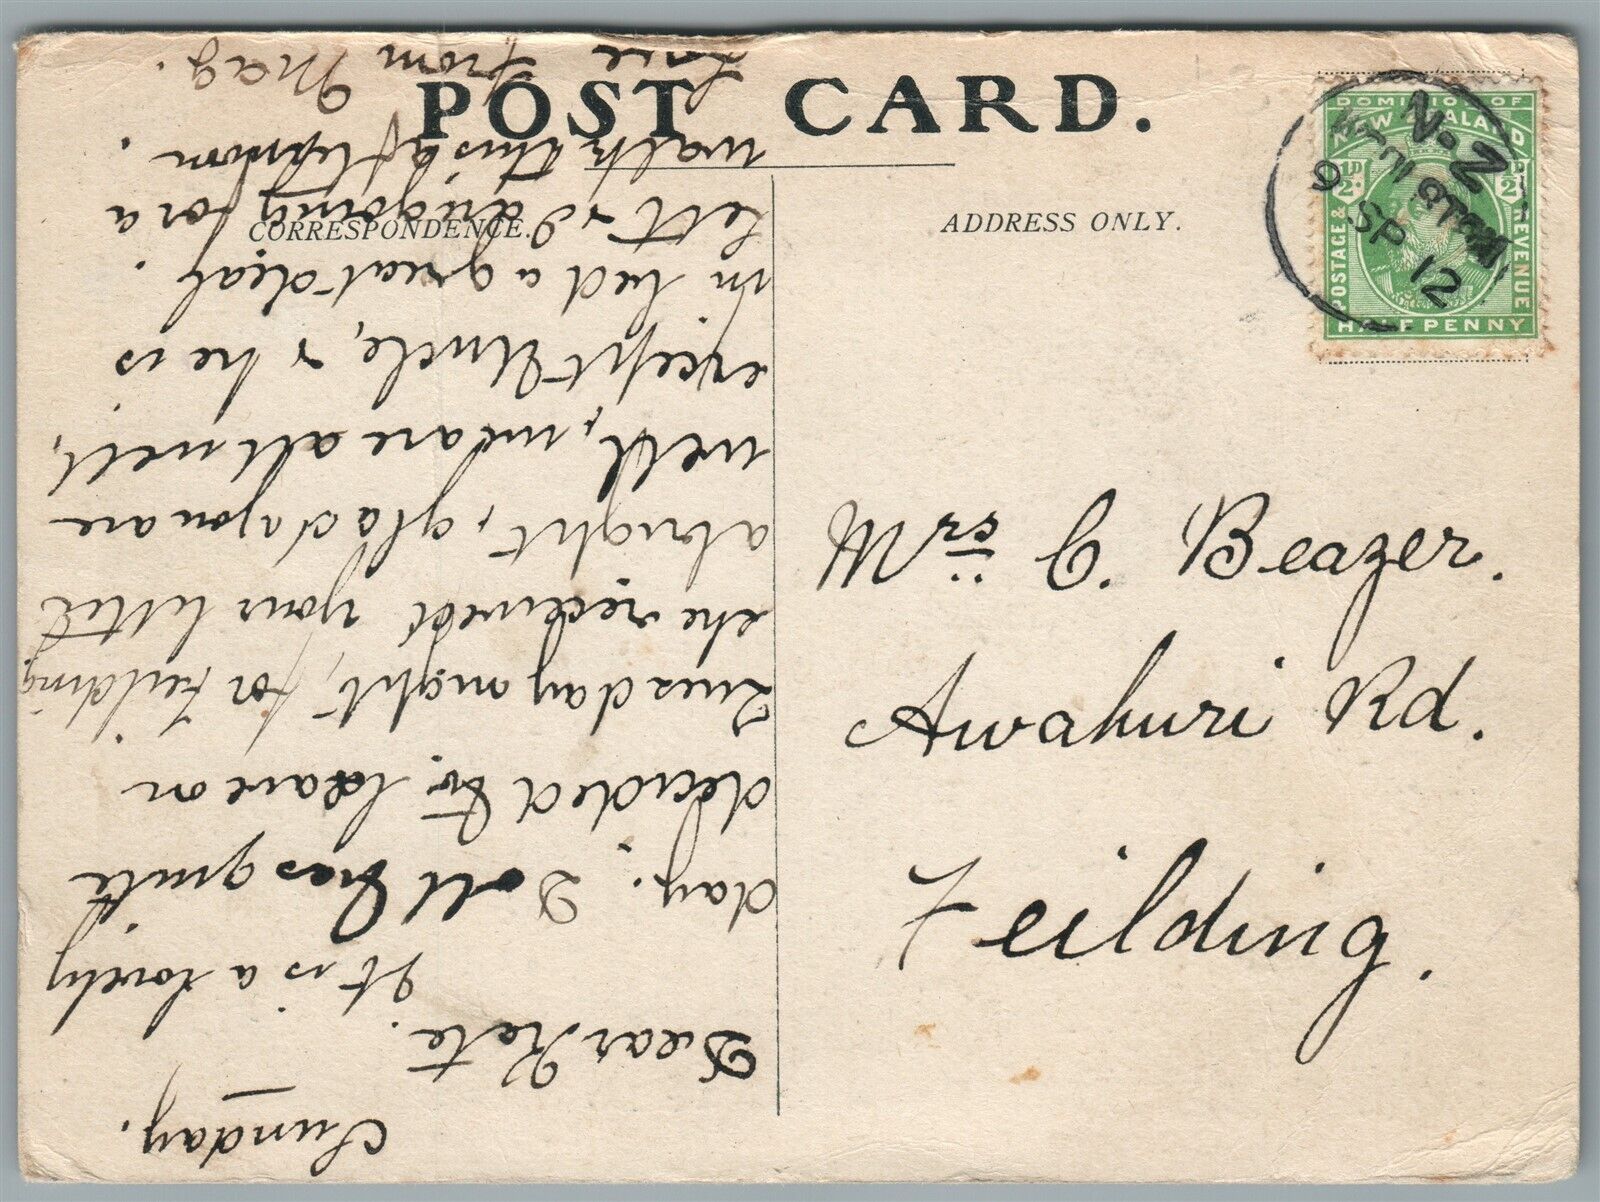 POST CARD.
CORRESPONDENCE.
ADDRESS ONLY.
DOMINION OF
NEW ZEALAND
POSTAGE & REVENUE
½D ½D
HALFPENNY
N.Z
9
SP
12
Mrs C. Beazer.
Awahuri Rd.
Feilding.
Sunday.
Dear Kate.
It is a lovely
day. Doll has quite
decided to leave on
Tuesday night, for Feilding
she received your letter
alright, glad you are
well, we are all well,
except Uncle, & he is
in bed a great deal.
Lett & I are going for a
walk this afternoon.
Love
from Mag.